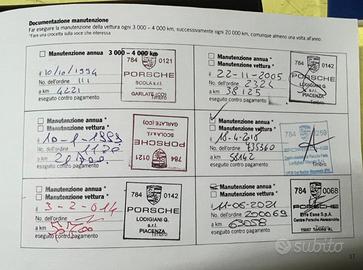 Documentazione manutenzione
Far eseguire la manutenzione della vettura ogni 3 000 – 4 000 km, successivamente ogni 20 000 km, comunque almeno una volta all'anno.
*Fare una crocetta sulla voce che interessa
Manutenzione annua 3 000 – 4 000 km
Manutenzione vettura*
il 10/10/1994
No. dell'ordine 111
a km 4221
eseguito contro pagamento
784 0121
PORSCHE
SCOLA s.r.l.
GARLATE (CO)
Timbro
Manutenzione annua *
Manutenzione vettura *
il 22-11-2005
No. dell'ordine 2324
a km 38125
eseguito contro pagamento
784 0142
PORSCHE
LODIGIANI G. s.r.l.
PIACENZA
Timbro
Manutenzione annua *
Manutenzione vettura *
No. dell'ordine 1120
a km
eseguito contro pagamento
784 0121
PORSCHE
SCOLA s.r.l.
GARLATE (CO)
Manutenzione annua *
Manutenzione vettura *
il 18-4-2018
No. dell'ordine
a km 58142
eseguito contro pagamento
784
Manutenzione annua *
Manutenzione vettura *
il 3-2-014
No. dell'ordine
a km
eseguito contro pagamento
784 0142
PORSCHE
LODIGIANI G. s.r.l.
PIACENZA
Timbro
Manutenzione annua *
Manutenzione vettura *
il 11-06-2021
No. dell'ordine 200069
a km 63058
eseguito contro pagamento
784 0068
Centro Porsche Parma
subito